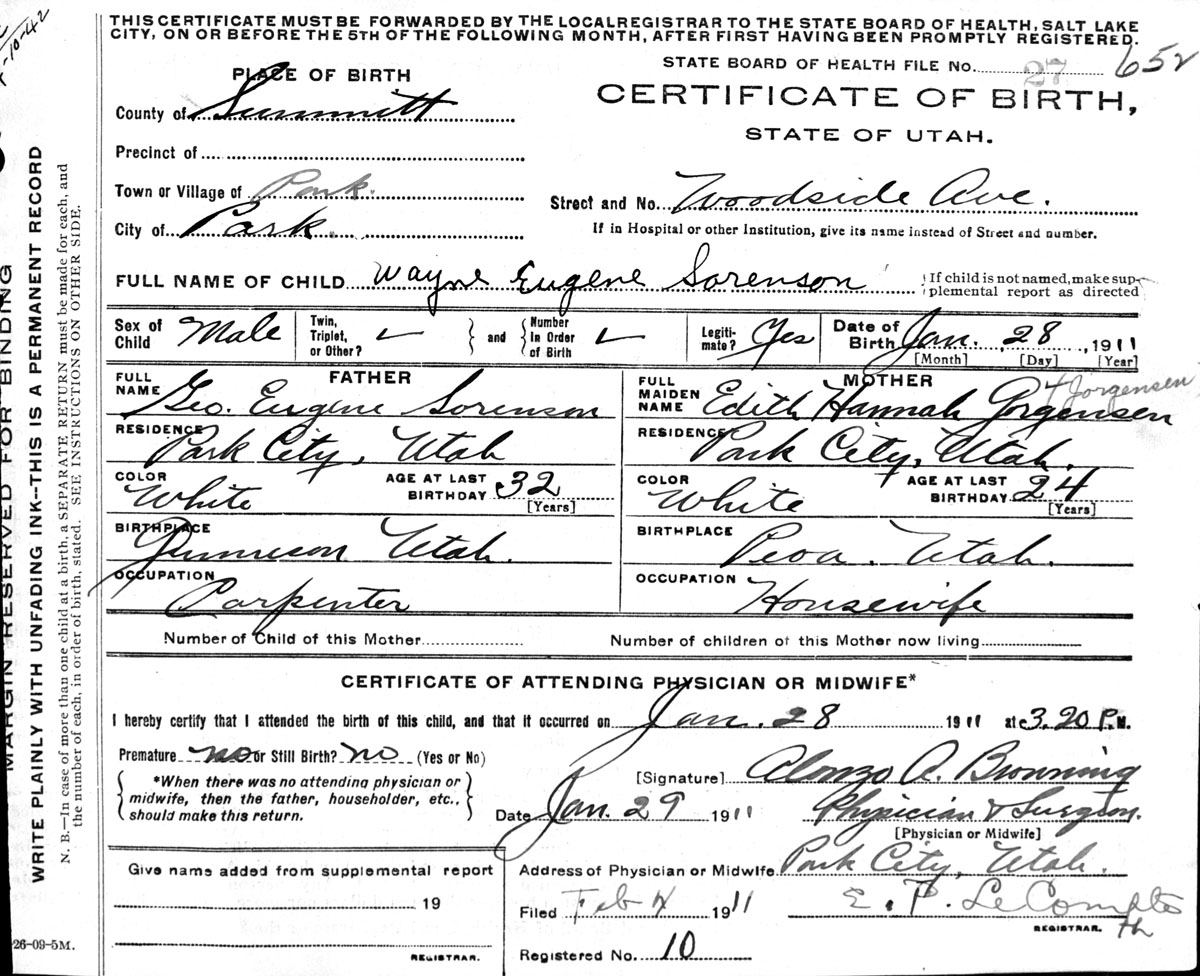 THIS CERTIFICATE MUST BE FORWARDED BY THE LOCAL REGISTRAR TO THE STATE BOARD OF HEALTH, SALT LAKE
CITY, ON OR BEFORE THE 5TH OF THE FOLLOWING MONTH, AFTER FIRST HAVING BEEN PROMPTLY REGISTERED.
STATE BOARD OF HEALTH FILE No. 27 652
PLACE OF BIRTH
CERTIFICATE OF BIRTH,
STATE OF UTAH.
County of Summitt
Precinct of
Town or Village of Park
Street and No. Woodside Ave.
City of Park
If in Hospital or other Institution, give its name instead of Street and number.
FULL NAME OF CHILD Wayne Eugene Sorenson
{If child is not named, make sup-
plemental report as directed
Sex of Child Male
Twin, Triplet, or Other? ✓ } and { Number in Order of Birth ✓
Legiti-mate? Yes
Date of Birth Jan. 28, 1911
[Month] [Day] [Year]
FATHER
FULL NAME Geo. Eugene Sorenson
RESIDENCE Park City, Utah
COLOR White AGE AT LAST BIRTHDAY 32
[Years]
BIRTHPLACE Gunnison Utah.
OCCUPATION Carpenter
MOTHER
Jorgensen
FULL MAIDEN NAME Edith Hannah Gorgensen
RESIDENCE Park City, Utah.
COLOR White AGE AT LAST BIRTHDAY 24
[Years]
BIRTHPLACE Peoa. Utah.
OCCUPATION Housewife
Number of Child of this Mother
Number of children of this Mother now living
CERTIFICATE OF ATTENDING PHYSICIAN OR MIDWIFE*
I hereby certify that I attended the birth of this child, and that it occurred on Jan. 28 1911 at 3.20 P.M.
Premature no or Still Birth? no (Yes or No)
{ *When there was no attending physician or
midwife, then the father, householder, etc.,
should make this return. }
[Signature] Alonzo A. Browning
Date Jan. 29 1911 Physician & Surgeon.
[Physician or Midwife]
Give name added from supplemental report
19
REGISTRAR.
Address of Physician or Midwife Park City, Utah.
Filed Feb 4 1911 E. P. Le Compte
REGISTRAR.
Registered No. 10
MARGIN RESERVED FOR BINDING
WRITE PLAINLY WITH UNFADING INK--THIS IS A PERMANENT RECORD
N. B.—In case of more than one child at a birth, a SEPARATE RETURN must be made for each, and
the number of each, in order of birth, stated. SEE INSTRUCTIONS ON OTHER SIDE.
26-09-5M.